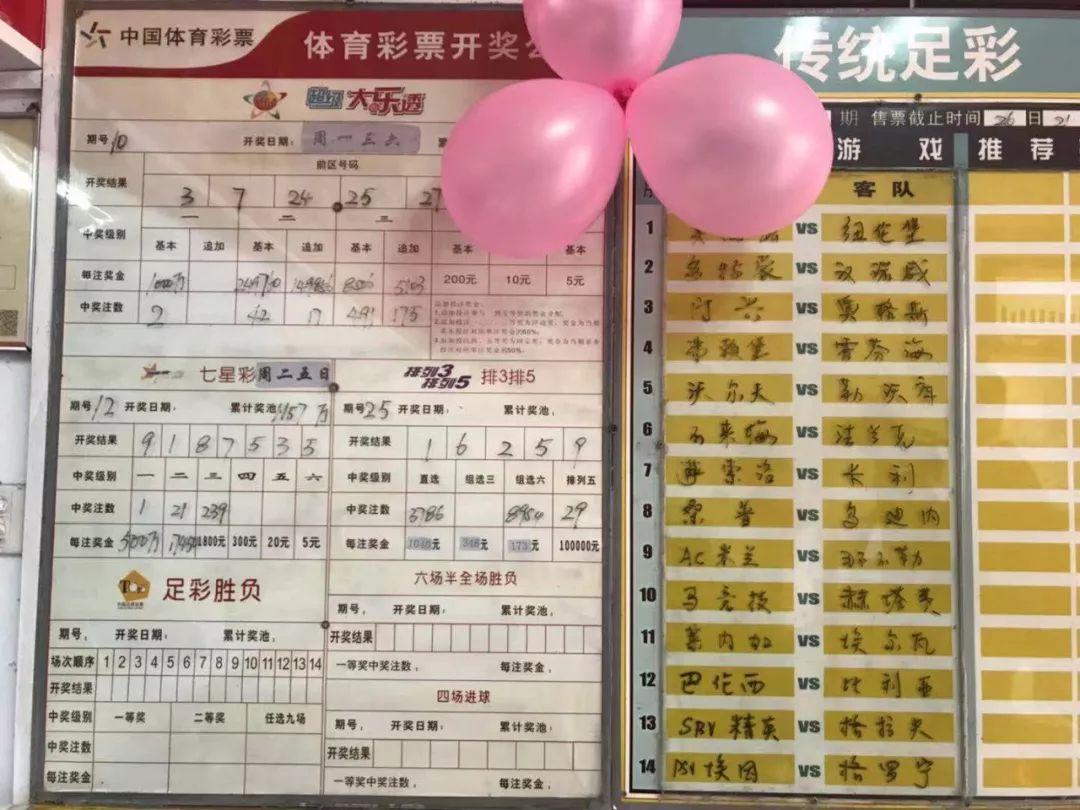 中国体育彩票
体育彩票开奖公
超级大乐透
期号 10 开奖日期： 周一三六
前区号码
开奖结果 3 7 24 25 27
一 二 三
中奖级别 基本 追加 基本 追加 基本 追加 基本 基本
每注奖金 1000万 200元 10元 5元
中奖注数 2 42 17 491 175
七星彩 周二五日
期号 12 开奖日期： 累计奖池
开奖结果 9 1 8 7 5 3 5
中奖级别 一 二 三 四 五 六
中奖注数 1 21 239
每注奖金 500万 1800元 300元 20元 5元
排列3 排列5 排3排5
期号 25 开奖日期： 累计奖池：
开奖结果 1 6 2 5 9
中奖级别 直选 组选三 组选六 排列五
中奖注数 8954 29
每注奖金 1040元 346元 173元 100000元
足彩胜负
期号， 开奖日期： 累计奖池：
场次顺序 1 2 3 4 5 6 7 8 9 10 11 12 13 14
开奖结果
中奖级别 一等奖 二等奖 任选九场
中奖注数
每注奖金
六场半全场胜负
期号， 开奖日期： 累计奖池，
开奖结果
一等奖中奖注数， 每注奖金，
四场进球
期号， 开奖日期： 累计奖池：
开奖结果
一等奖中奖注数， 每注奖金，
传统足彩
期 售票截止时间 26 日 21
游戏推荐
客队
1 VS 纽伦堡
2 多特蒙 VS 汉诺威
3 门兴 VS 奥格斯
4 弗赖堡 VS 霍芬海
5 沃尔夫 VS 勒沃库
6 不来梅 VS 法兰克
7 萨索洛 VS 卡利
8 桑普 VS 乌迪内
9 AC米兰 VS 那不勒
10 马竞技 VS 赫塔费
11 莱内加 VS 埃尔瓦
12 巴伦西 VS 比利亚
13 SBV精英 VS 格拉夫
14 PSV埃因 VS 格罗宁